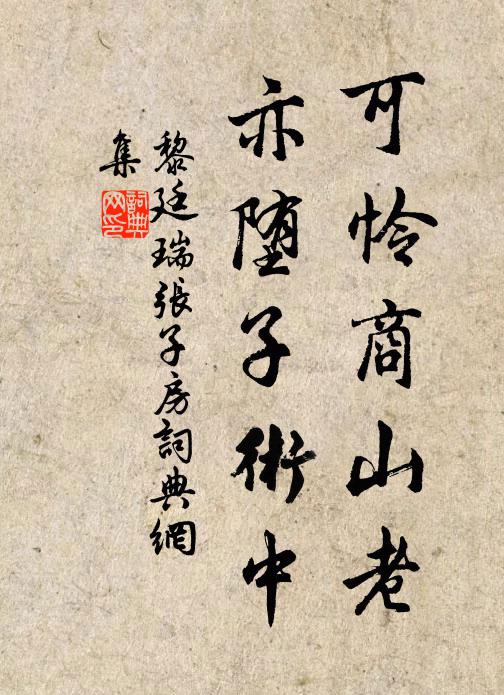 可怜商山老
亦堕子術中
黎廷瑞張子房詞典網
集
詞典
网印